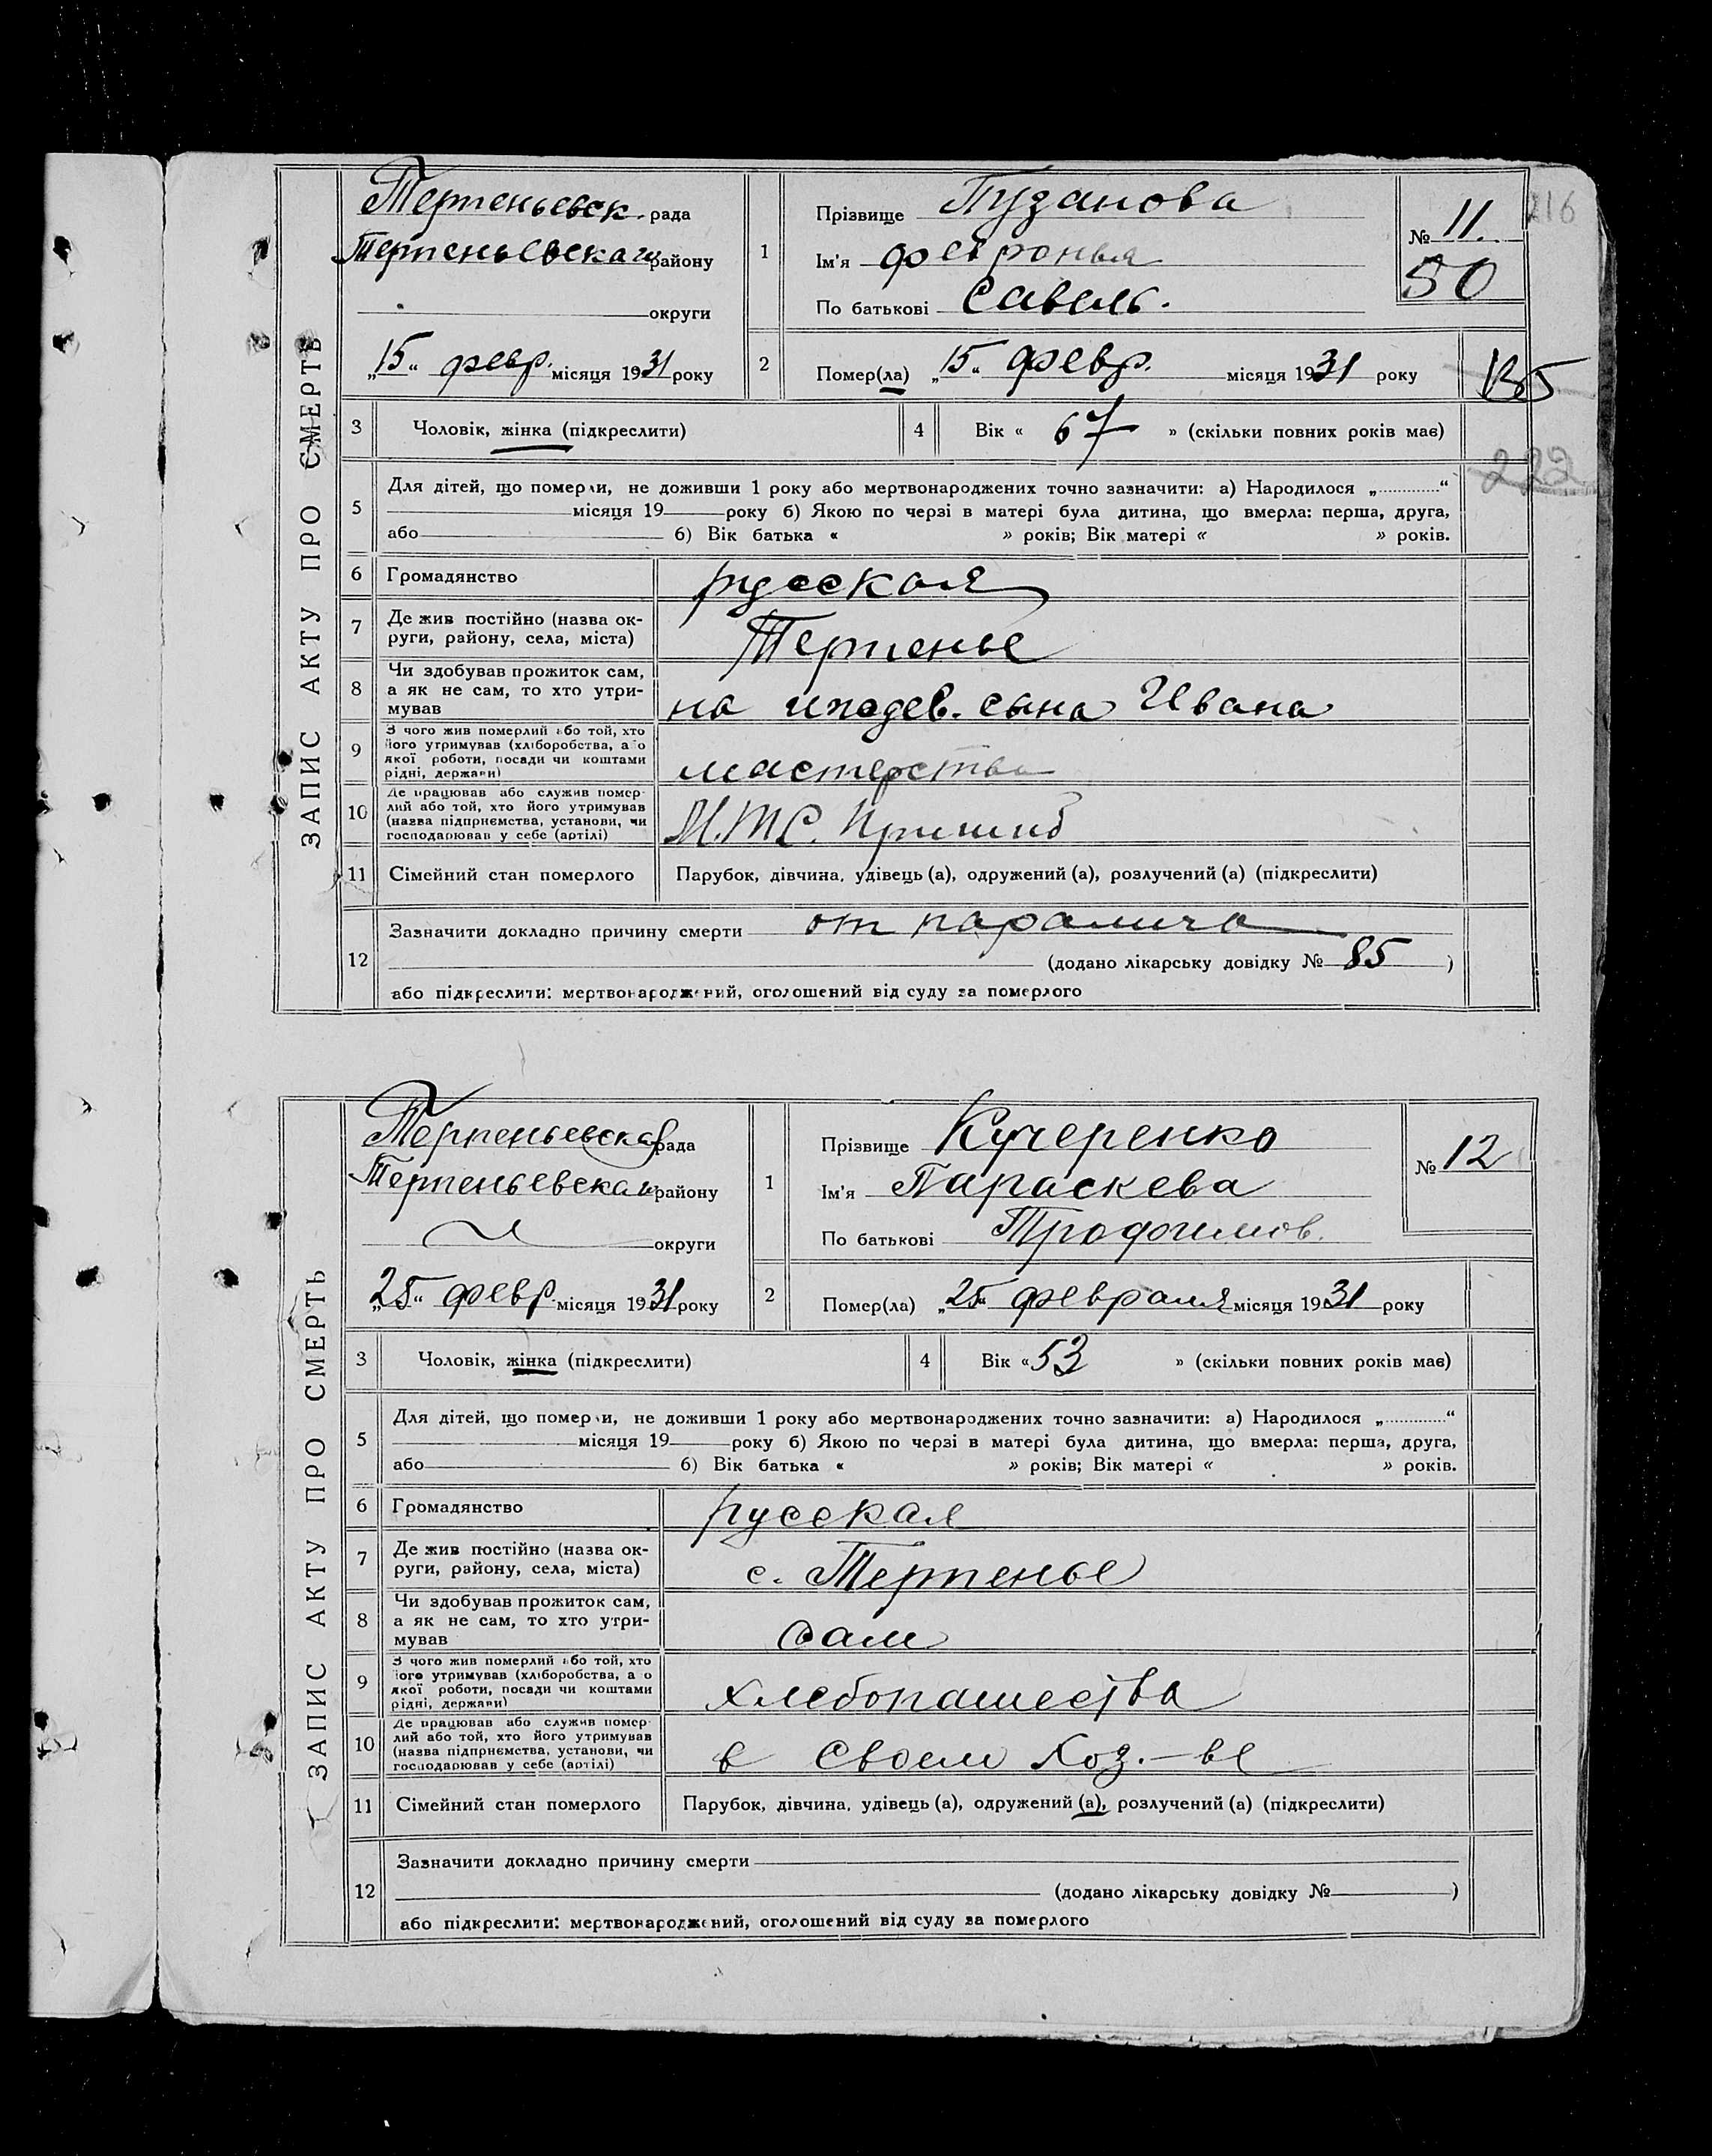 ЗАПИС АКТУ ПРО СМЕРТЬ
Терпеньевск. рада
Терпеньевскаго району
округи
„15“ февр. місяця 1931 року
1
Прізвище Пузанова
Ім'я Февронья
По батькові Савель.
№ 11.
50
216
2
Помер(ла) „15“ февр. місяця 1931 року
3 Чоловік, жінка (підкреслити)
4 Вік « 67 » (скільки повних років має)
222
5
Для дітей, що померли, не доживши 1 року або мертвонароджених точно зазначити: а) Народилося „............“
місяця 19 року б) Якою по черзі в матері була дитина, що вмерла: перша, друга,
або б) Вік батька « » років; Вік матері « » років.
6 Громадянство русская
7 Де жив постійно (назва ок-
руги, району, села, міста)
Терпенье
8 Чи здобував прожиток сам,
а як не сам, то хто утри-
мував
на иждев. сына Ивана
9 З чого жив померлий або той, хто
його утримував (хліборобства, або
якої роботи, посади чи коштами
рідні, держави)
мастерства
10 Де працював або служив помер-
лий або той, хто його утримував
(назва підприємства, установи, чи
господарював у себе (артілі)
М.Т.С. Пришиб
11 Сімейний стан померлого Парубок, дівчина, удівець (а), одружений (а), розлучений (а) (підкреслити)
12
Зазначити докладно причину смерти от паралича
(додано лікарську довідку № 85 )
або підкреслити: мертвонароджений, оголошений від суду за померлого
ЗАПИС АКТУ ПРО СМЕРТЬ
Терпеньевская рада
Терпеньевскаго району
округи
„25“ февр. місяця 1931 року
1
Прізвище Кучеренко
Ім'я Параскева
По батькові Трофимов.
№ 12
2
Помер(ла) „25“ февраля місяця 1931 року
3 Чоловік, жінка (підкреслити)
4 Вік « 53 » (скільки повних років має)
5
Для дітей, що померли, не доживши 1 року або мертвонароджених точно зазначити: а) Народилося „............“
місяця 19 року б) Якою по черзі в матері була дитина, що вмерла: перша, друга,
або б) Вік батька « » років; Вік матері « » років.
6 Громадянство русская
7 Де жив постійно (назва ок-
руги, району, села, міста)
с. Терпенье
8 Чи здобував прожиток сам,
а як не сам, то хто утри-
мував
сам
9 З чого жив померлий або той, хто
його утримував (хліборобства, або
якої роботи, посади чи коштами
рідні, держави)
хлебопашества
10 Де працював або служив помер-
лий або той, хто його утримував
(назва підприємства, установи, чи
господарював у себе (артілі)
в своем хоз.-ве
11 Сімейний стан померлого Парубок, дівчина, удівець (а), одружений (а), розлучений (а) (підкреслити)
12
Зазначити докладно причину смерти
(додано лікарську довідку № )
або підкреслити: мертвонароджений, оголошений від суду за померлого